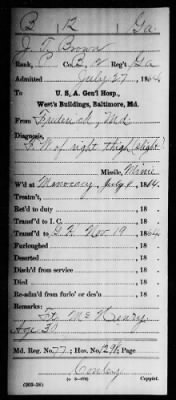 B R Ga
J. T. Brown
Rank, P Co. B, Reg't Ga
Admitted July 27, 1864
To
U. S. A. Gen'l Hosp.,
West's Buildings, Baltimore, Md.
From Frederick, Md
Diagnosis,
G. S. W of right thigh (slight)
Missile, Minie
W'd at Monocacy, July 9, 1864.
Treatm't,
Ret'd to duty , 18 .
Transf'd to I. C. , 18 .
Transf'd to G. H. Nov 19, 1864
Furloughed , 18 .
Deserted , 18 .
Disch'd from service , 18 .
Died , 18 .
Re-adm'd from furlo' or des'n , 18 .
Remarks:
Ft. McHenry
Age 30
Md. Reg. No. 77; Hos. No.
Conley
(303-38) Copyist.